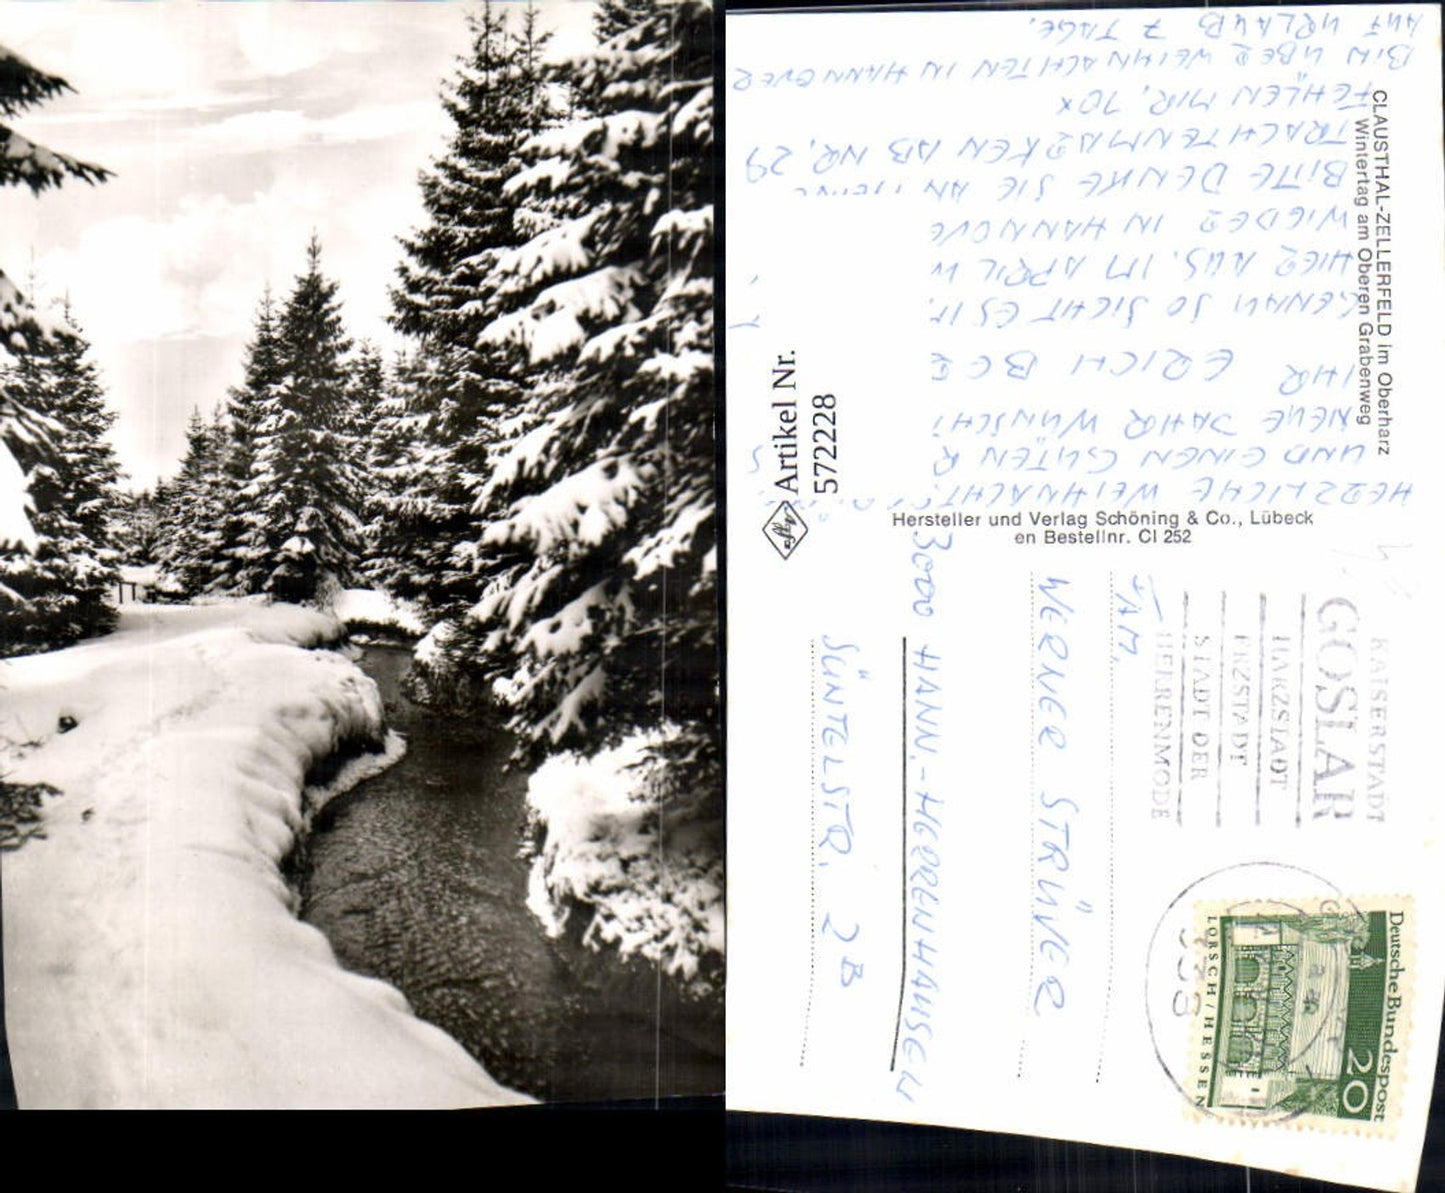 CLAUSTHAL-ZELLERFELD im Oberharz
Wintertag am Oberen Grabenweg
HERZLICHE WEIHNACHT
UND EINEN GUTEN R
NEUE JAHR WÜNSCHT
IHR ERICH
GENAU SO SIEHT ES
HIER AUS. IM APRIL
WIEDER IN HANNOVE
BITTE DENKE SIE AN MEINE
TRACHTENMARKEN AB NR. 29
FEHLEN MIR. 10x
BIN ÜBER WEIHNACHTEN IN HANNOVER
AUF URLAUB 7 TAGE.
Artikel Nr.
572228
Agfa
Hersteller und Verlag Schöning & Co., Lübeck
en Bestellnr. Cl 252
KAISERSTADT
GOSLAR
HARZSTADT
ERZSTADT
STADT DER
HERRENMODE
Deutsche Bundespost
20
LORSCH / HESSEN
FAM.
WERNER STRÜVER
3000 HANN.-HERRENHAUSEN
SÜNTELSTR. 2B